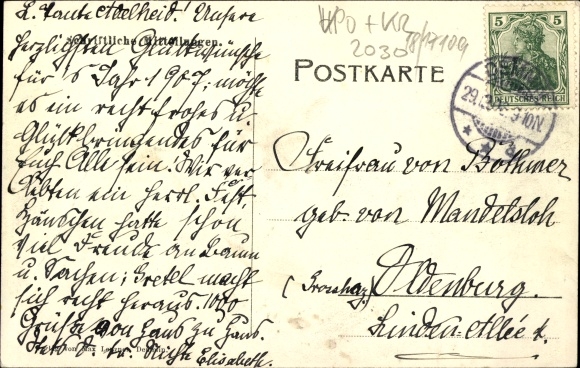 L. Tante Adelheid! Unsere
herzlichsten Glückwünsche
Schriftliche Mitteilungen.
für's Jahr 1907; möchte
es ein recht frohes u.
Glückbringendes für
euch Alle sein! Wir ver
lebten ein herrl. Fest,
Hänschen hatte schon
viel Freude an Baum
u. Sachen; Gretel macht
sich recht heraus. 1000
Grüße von Haus zu Haus.
Stets d. tr. Nichte Elisabeth.
POSTKARTE
Freifrau von Bothmer
geb. von Mandelsloh
Oldenburg.
Linden-Allée
5 5
DEUTSCHES REICH
HPO + KR
2030